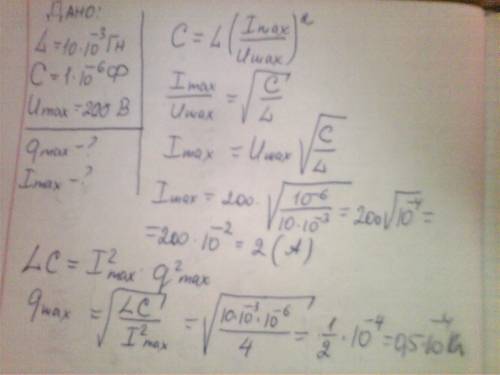 Дано:
L=10·10⁻³ Гн
C=1·10⁻⁶ Ф
Umax=200 В
qmax-?
Imax-?
C=L(Imax/Umax)²
Imax/Umax=√(C/L)
Imax=Umax√(C/L)
Imax=200·√(10⁻⁶/10·10⁻³)=200√10⁻⁴=
=200·10⁻²=2(A)
LC=I²max·q²max
qmax=√(LC/I²max)=√(10·10⁻³·10⁻⁶/4)=1/2·10⁻⁴=0,5·10⁻⁴Кл